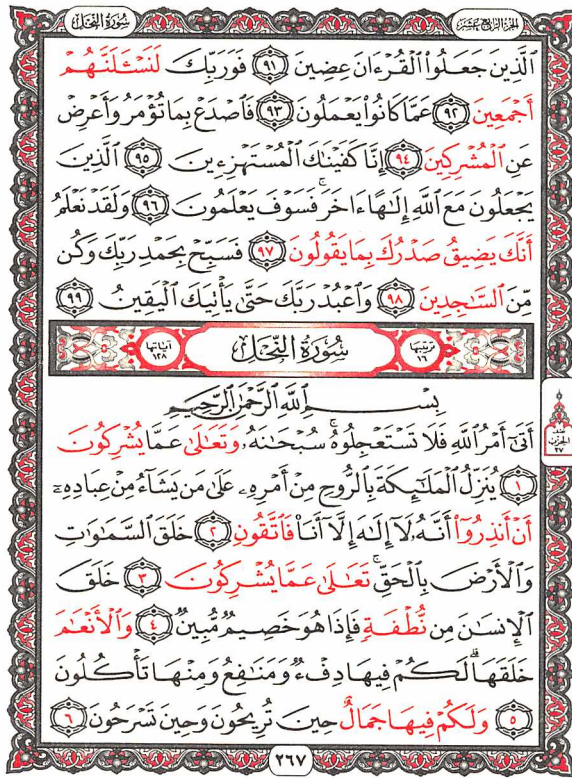 الجزء الرابع عشر
سُورَةُ النَّحْلِ
الَّذِينَ جَعَلُوا۟ الْقُرْءَانَ عِضِينَ ٩١ فَوَرَبِّكَ لَنَسْـَٔلَنَّهُمْ
أَجْمَعِينَ ٩٢ عَمَّا كَانُوا۟ يَعْمَلُونَ ٩٣ فَاصْدَعْ بِمَا تُؤْمَرُ وَأَعْرِضْ
عَنِ الْمُشْرِكِينَ ٩٤ إِنَّا كَفَيْنَٰكَ الْمُسْتَهْزِءِينَ ٩٥ الَّذِينَ
يَجْعَلُونَ مَعَ اللَّهِ إِلَٰهًا ءَاخَرَ ۚ فَسَوْفَ يَعْلَمُونَ ٩٦ وَلَقَدْ نَعْلَمُ
أَنَّكَ يَضِيقُ صَدْرُكَ بِمَا يَقُولُونَ ٩٧ فَسَبِّحْ بِحَمْدِ رَبِّكَ وَكُن
مِّنَ السَّٰجِدِينَ ٩٨ وَاعْبُدْ رَبَّكَ حَتَّىٰ يَأْتِيَكَ الْيَقِينُ ٩٩
ترتيبها ١٦
سُورَةُ النَّحْلِ
آياتها ١٢٨
بِسْمِ اللَّهِ الرَّحْمَٰنِ الرَّحِيمِ
أَتَىٰٓ أَمْرُ اللَّهِ فَلَا تَسْتَعْجِلُوهُ ۚ سُبْحَٰنَهُۥ وَتَعَٰلَىٰ عَمَّا يُشْرِكُونَ
١ يُنَزِّلُ الْمَلَٰٓئِكَةَ بِالرُّوحِ مِنْ أَمْرِهِۦ عَلَىٰ مَن يَشَآءُ مِنْ عِبَادِهِۦٓ
أَنْ أَنذِرُوٓا۟ أَنَّهُۥ لَآ إِلَٰهَ إِلَّآ أَنَا۠ فَاتَّقُونِ ٢ خَلَقَ السَّمَٰوَٰتِ
وَالْأَرْضَ بِالْحَقِّ ۚ تَعَٰلَىٰ عَمَّا يُشْرِكُونَ ٣ خَلَقَ
الْإِنسَٰنَ مِن نُّطْفَةٍ فَإِذَا هُوَ خَصِيمٌ مُّبِينٌ ٤ وَالْأَنْعَٰمَ
خَلَقَهَا ۗ لَكُمْ فِيهَا دِفْءٌ وَمَنَٰفِعُ وَمِنْهَا تَأْكُلُونَ
٥ وَلَكُمْ فِيهَا جَمَالٌ حِينَ تُرِيحُونَ وَحِينَ تَسْرَحُونَ ٦
٢٦٧
الحزب
٢٧